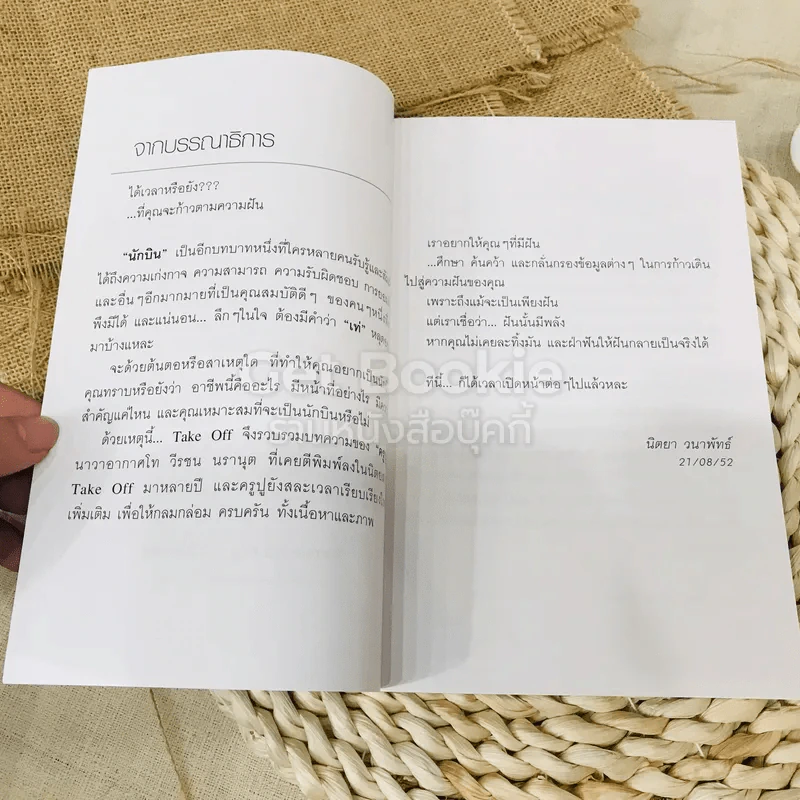 จากบรรณาธิการ
ได้เวลาหรือยัง???
...ที่คุณจะก้าวตามความฝัน
“นักบิน” เป็นอีกบทบาทหนึ่งที่ใครหลายคนรับรู้และ
ได้ถึงความเก่งกาจ ความสามารถ ความรับผิดชอบ การ
และอื่นๆอีกมากมายที่เป็นคุณสมบัติดีๆ ของคนๆหนึ่ง
พึงมีได้ และแน่นอน... ลึกๆในใจ ต้องมีคำว่า “เท่”
มาบ้างแหละ
จะด้วยต้นตอหรือสาเหตุใด ที่ทำให้คุณอยากเป็น
คุณทราบหรือยังว่า อาชีพนี้คืออะไร มีหน้าที่อย่างไร
สำคัญแค่ไหน และคุณเหมาะสมที่จะเป็นนักบินหรือไม่
ด้วยเหตุนี้... Take Off จึงรวบรวมบทความของ
นาวาอากาศโท วีรชน นรานุต ที่เคยตีพิมพ์ลงในนิตย
Take Off มาหลายปี และครูปูยังสละเวลาเรียบเรียง
เพิ่มเติม เพื่อให้กลมกล่อม ครบครัน ทั้งเนื้อหาและภาพ
เราอยากให้คุณๆที่มีฝัน
...ศึกษา ค้นคว้า และกลั่นกรองข้อมูลต่างๆ ในการก้าวเดิน
ไปสู่ความฝันของคุณ
เพราะถึงแม้จะเป็นเพียงฝัน
แต่เราเชื่อว่า... ฝันนั้นมีพลัง
หากคุณไม่เคยละทิ้งมัน และฝ่าฟันให้ฝันกลายเป็นจริงได้
ทีนี้... ก็ได้เวลาเปิดหน้าต่อๆไปแล้วหละ
นิตยา วนาพัทธ์
21/08/52
Get Bookie
ร้านหนังสือบุ๊คกี้